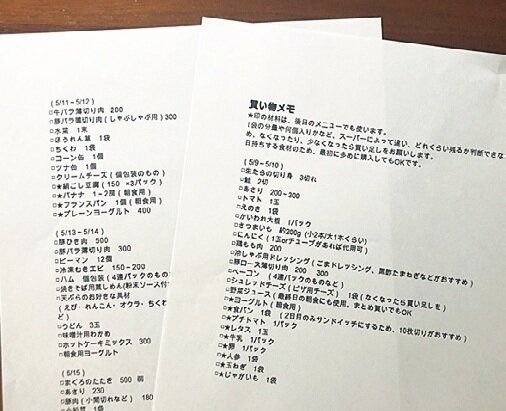 (5/11~5/12)
□牛バラ薄切り肉 200
□豚バラ薄切り肉(しゃぶしゃぶ用)300
□水菜 1束
□ほうれん草 1袋
□ちくわ 1袋
□コーン缶 1個
□ツナ缶 1個
□クリームチーズ(個包装のもの)
★絹ごし豆腐(150×3パック)
★バナナ 1~2房(朝食用)
★フランスパン 1個(朝食用)
★プレーンヨーグルト 400
(5/13~5/14)
□豚ひき肉 500
□豚バラ薄切り肉 300
□ピーマン 12個
□冷凍むきエビ 150~200
□ハム 個包装(4連パックのもの
□焼きそば用蒸しめん(粉末ソース付
□天ぷらのお好きな具材
(えび・れんこん・オクラ・ちくわ
ど)
□うどん 3玉
□味噌汁用わかめ
□ホットケーキミックス 300
□朝食用ヨーグルト
(5/15)
□まぐろのたたき 500 弱
□あさり 230
□豚肉(小間切れなど) 180
買い物メモ
★印の材料は、後日のメニューでも使います。
1袋の分量や何個入りかなど、スーパーによって違い、どれくらい残るか判断できな
め、なくなったり、少なくなったら買い足しをお願いします。
日持ちする食材のため、最初に多めに購入してもOKです。
(5/9~5/10)
□生たらの切り身 3切れ
□鮭 2切
□あさり 200~300
□トマト 1玉
□えのき 1袋
□かいわれ大根 1パック
□さつまいも 約200g(小2本/大1本くらい)
□にんにく(1玉orチューブがあれば代用可)
□鶏もも肉 200
□冷しゃぶ用ドレッシング(ごまドレッシング、黒酢たまねぎなどがおすすめ)
□豚ロース薄切り肉 200 300
□ベーコン (4連パックのものなど)
□シュレッドチーズ(ピザ用チーズ) 1袋(なくなったら買い足しを)
□野菜ジュース(最終日の朝食にも使用。まとめ買いでもOK)
□★ヨーグルト(朝食用)
□★食パン 1袋 (2日目のみサンドイッチにするため、10枚切りがおすすめ)
□★プチトマト 1パック
□★レタス 1玉
□★牛乳 1パック
□★卵 1パック
□★人参 1袋
□★玉ねぎ 1袋
□★じゃがいも 1袋